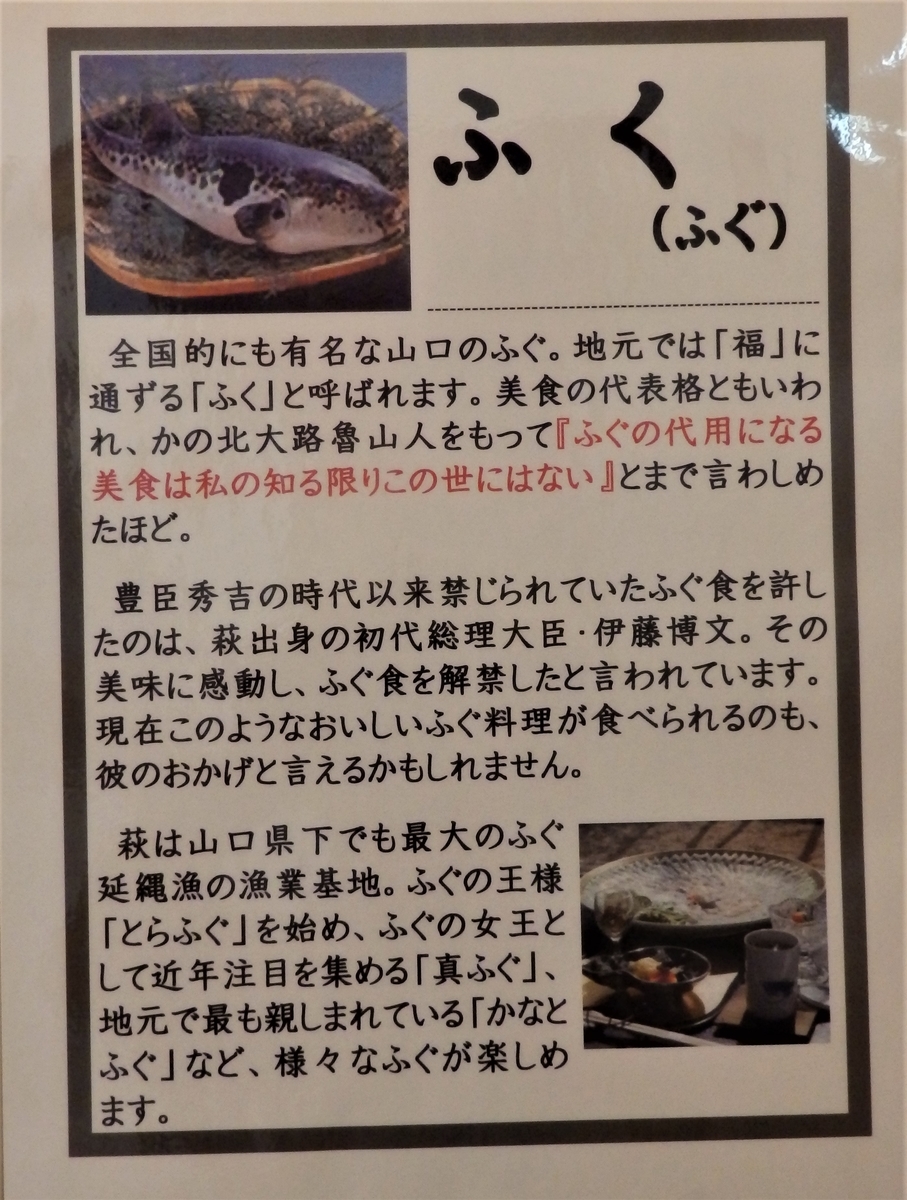 ふく
(ふぐ)
全国的にも有名な山口のふぐ。地元では「福」に
通ずる「ふく」と呼ばれます。美食の代表格ともいわ
れ、かの北大路魯山人をもって『ふぐの代用になる
美食は私の知る限りこの世にはない』とまで言わしめ
たほど。
豊臣秀吉の時代以来禁じられていたふぐ食を許し
たのは、萩出身の初代総理大臣・伊藤博文。その
美味に感動し、ふぐ食を解禁したと言われています。
現在このようなおいしいふぐ料理が食べられるのも、
彼のおかげと言えるかもしれません。
萩は山口県下でも最大のふぐ
延縄漁の漁業基地。ふぐの王様
「とらふぐ」を始め、ふぐの女王と
して近年注目を集める「真ふぐ」、
地元で最も親しまれている「かなと
ふぐ」など、様々なふぐが楽しめ
ます。